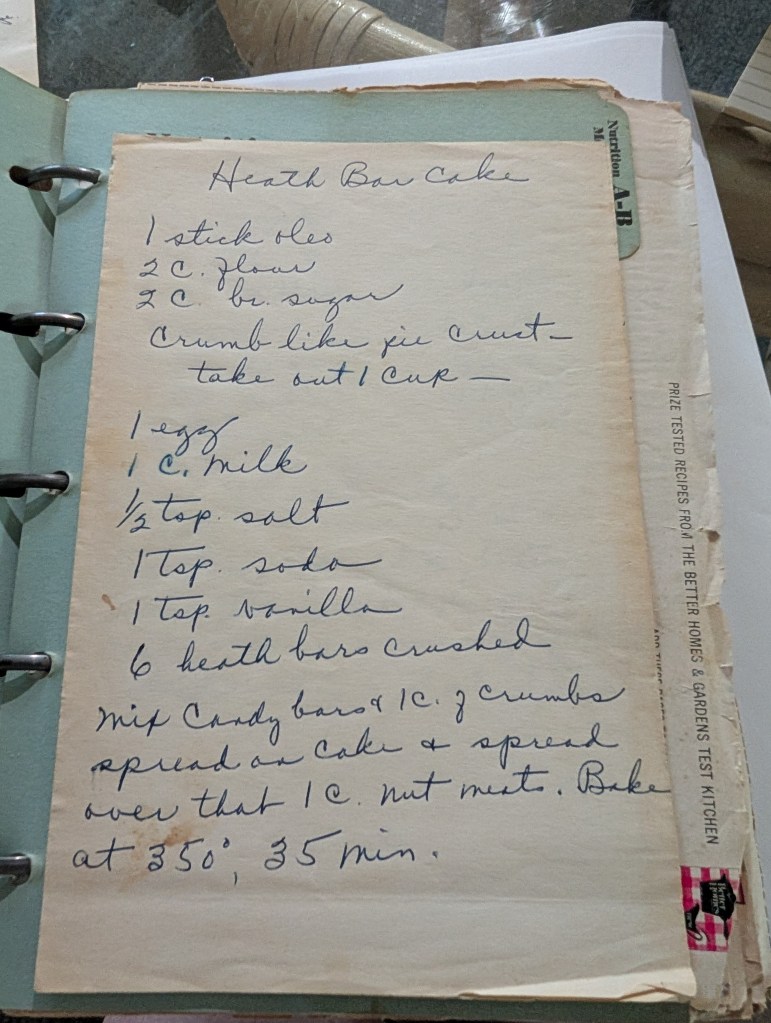 Heath Bar Cake
1 stick oleo
2 c. flour
2 c. br. sugar
Crumb like pie crust —
take out 1 cup —
1 egg
1 c. milk
1/2 tsp. salt
1 tsp. soda
1 tsp. vanilla
6 heath bars crushed
Mix Candy bars & 1 c. of crumbs
spread on cake & spread
over that 1 c. nut meats. Bake
at 350°, 35 min.
Nutrition
A-B
PRIZE TESTED RECIPES FROM THE BETTER HOMES & GARDENS TEST KITCHEN
Better
Homes